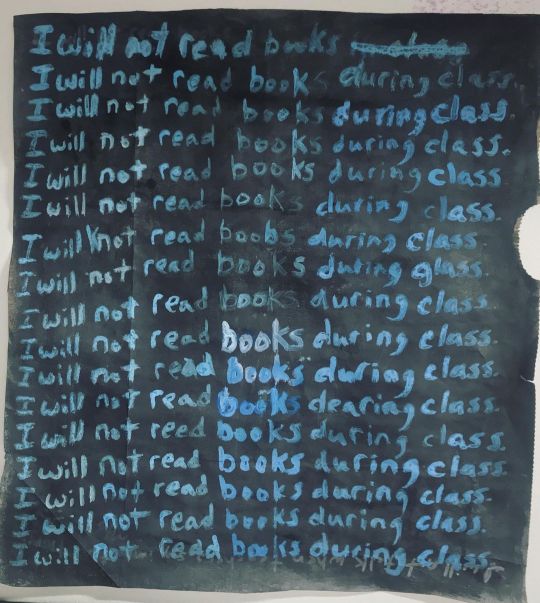 I will not read books
I will not read books during class.
I will not read books during class.
I will not read books during class.
I will not read books during class
I will not read books during class.
I will not read boobs during class.
I will not read books during glass.
I will not read books during class.
I will not read books during class.
I will not read books during class.
I will not read books dearing class.
I will not reed books during class.
I will not read books during class.
I will not read books during class.
I will not read books during class.
I will not read books during class.